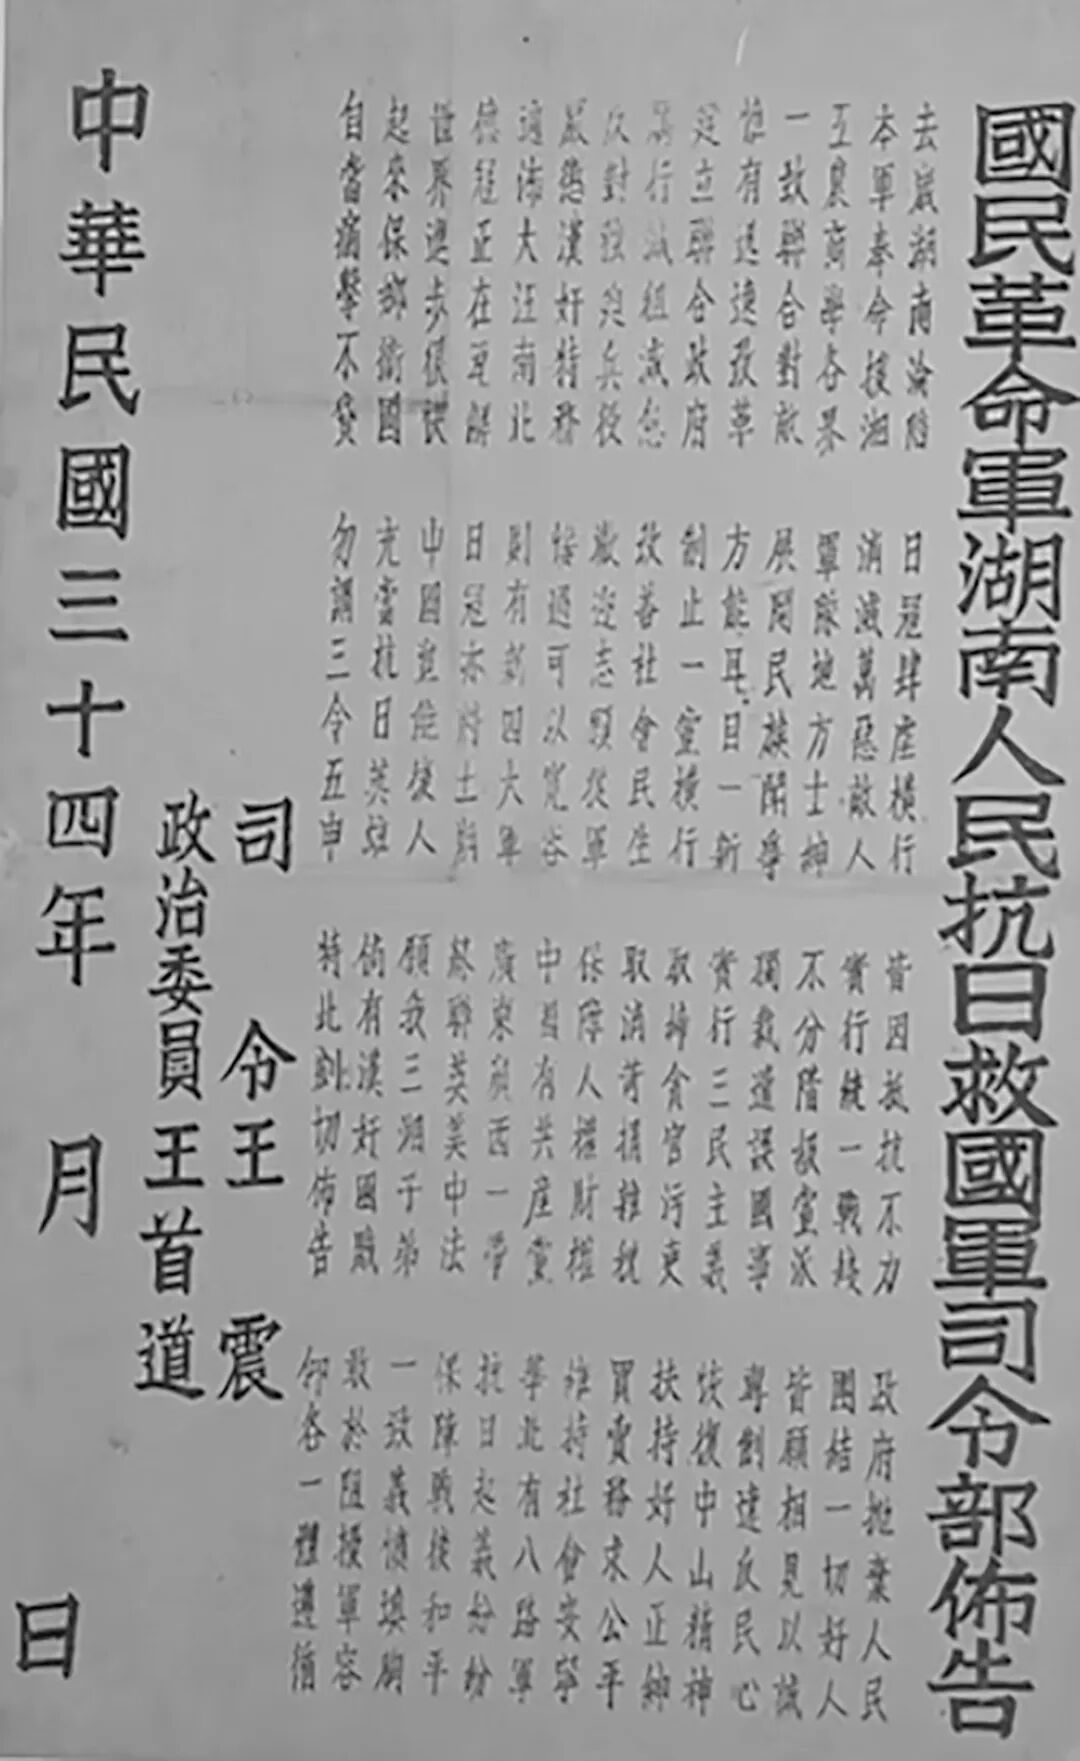 國民革命軍湖南人民抗日救國軍司令部佈告
去歲湖南淪陷 日冦肆虐橫行 皆因抵抗不力 政府拋棄人民
本軍奉命援湘 消滅萬惡敵人 實行統一戰綫 團結一切好人
工農商學各界 軍隊地方士紳 不分階級黨派 皆願相見以誠
一致聯合對敵 展開民族鬪爭 獨裁遺誤國事 專制違反民心
惟有迅速改革 方能耳目一新 實行三民主義 恢復中山精神
建立聯合政府 制止一黨橫行 取締貪官污吏 扶持好人正紳
厲行減租減息 改善社會民生 取消苛捐雜稅 買賣務求公平
反對強兵役 歡迎志願從軍 保障人權財權 維持社會安寧
嚴懲漢奸特務 悔過可以寬容 中國有共產黨 華北有八路軍
遍佈大江南北 則有新四大軍 廣東西一帶 抗日起義紛紛
德冦正在瓦解 日冦亦將土崩 蘇聯英美中法 保障戰後和平
世界進步很快 中國豈能後人 願我三湘子弟 一致義憤填胸
起來保鄉衛國 充當抗日英雄 倘有漢奸國賊 敢於阻撓軍容
自當痛擊不貸 勿謂三令五申 特此剴切佈告 仰各一體遵循
司令王震
政治委員王首道
中華民國三十四年 月 日